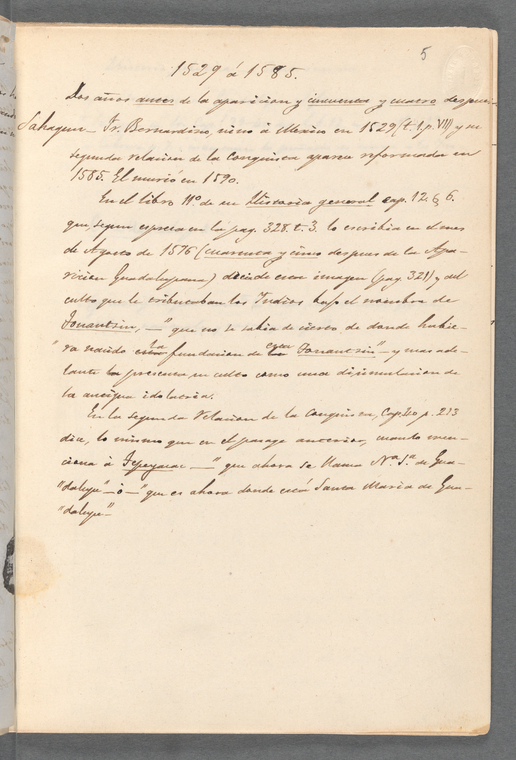 5
1529 á 1585.
Dos años antes de la aparicion y cincuenta y cuatro despues–
Sahagun – Fr. Bernardino, vino á Mexico en 1529 (t. 1. p. VII) y su
segunda relacion de la Conquista aparece reformada en
1585. El murió en 1590.
En el libro 11º de su Historia general cap. 12. § 6.
que, segun espresa en la pag. 328. t. 3. lo escribia en el mes
de Agosto de 1576 (cuarenta y cinco despues de la Apa-
ricion Guadalupana,) decia de esta imagen (pag. 321) y del
culto que le tributaban los Indios bajo el nombre de
Tonantzin, — "que no se sabia de cierto de donde hubie-
"ra nacido la fundacion de esta Tonantzin" – y mas ade-
lante la presenta su culto como una disimulacion de
la antigua idolatria.
En la segunda Relacion de la Conquista, Cap. p. 213
dice, lo mismo que en el pasage anterior, cuando men-
ciona á Tepeyacac — "que ahora se llama Nª Sª de Gua-
"dalupe" – ó – "que es ahora donde está Santa Maria de Gua-
"dalupe"–